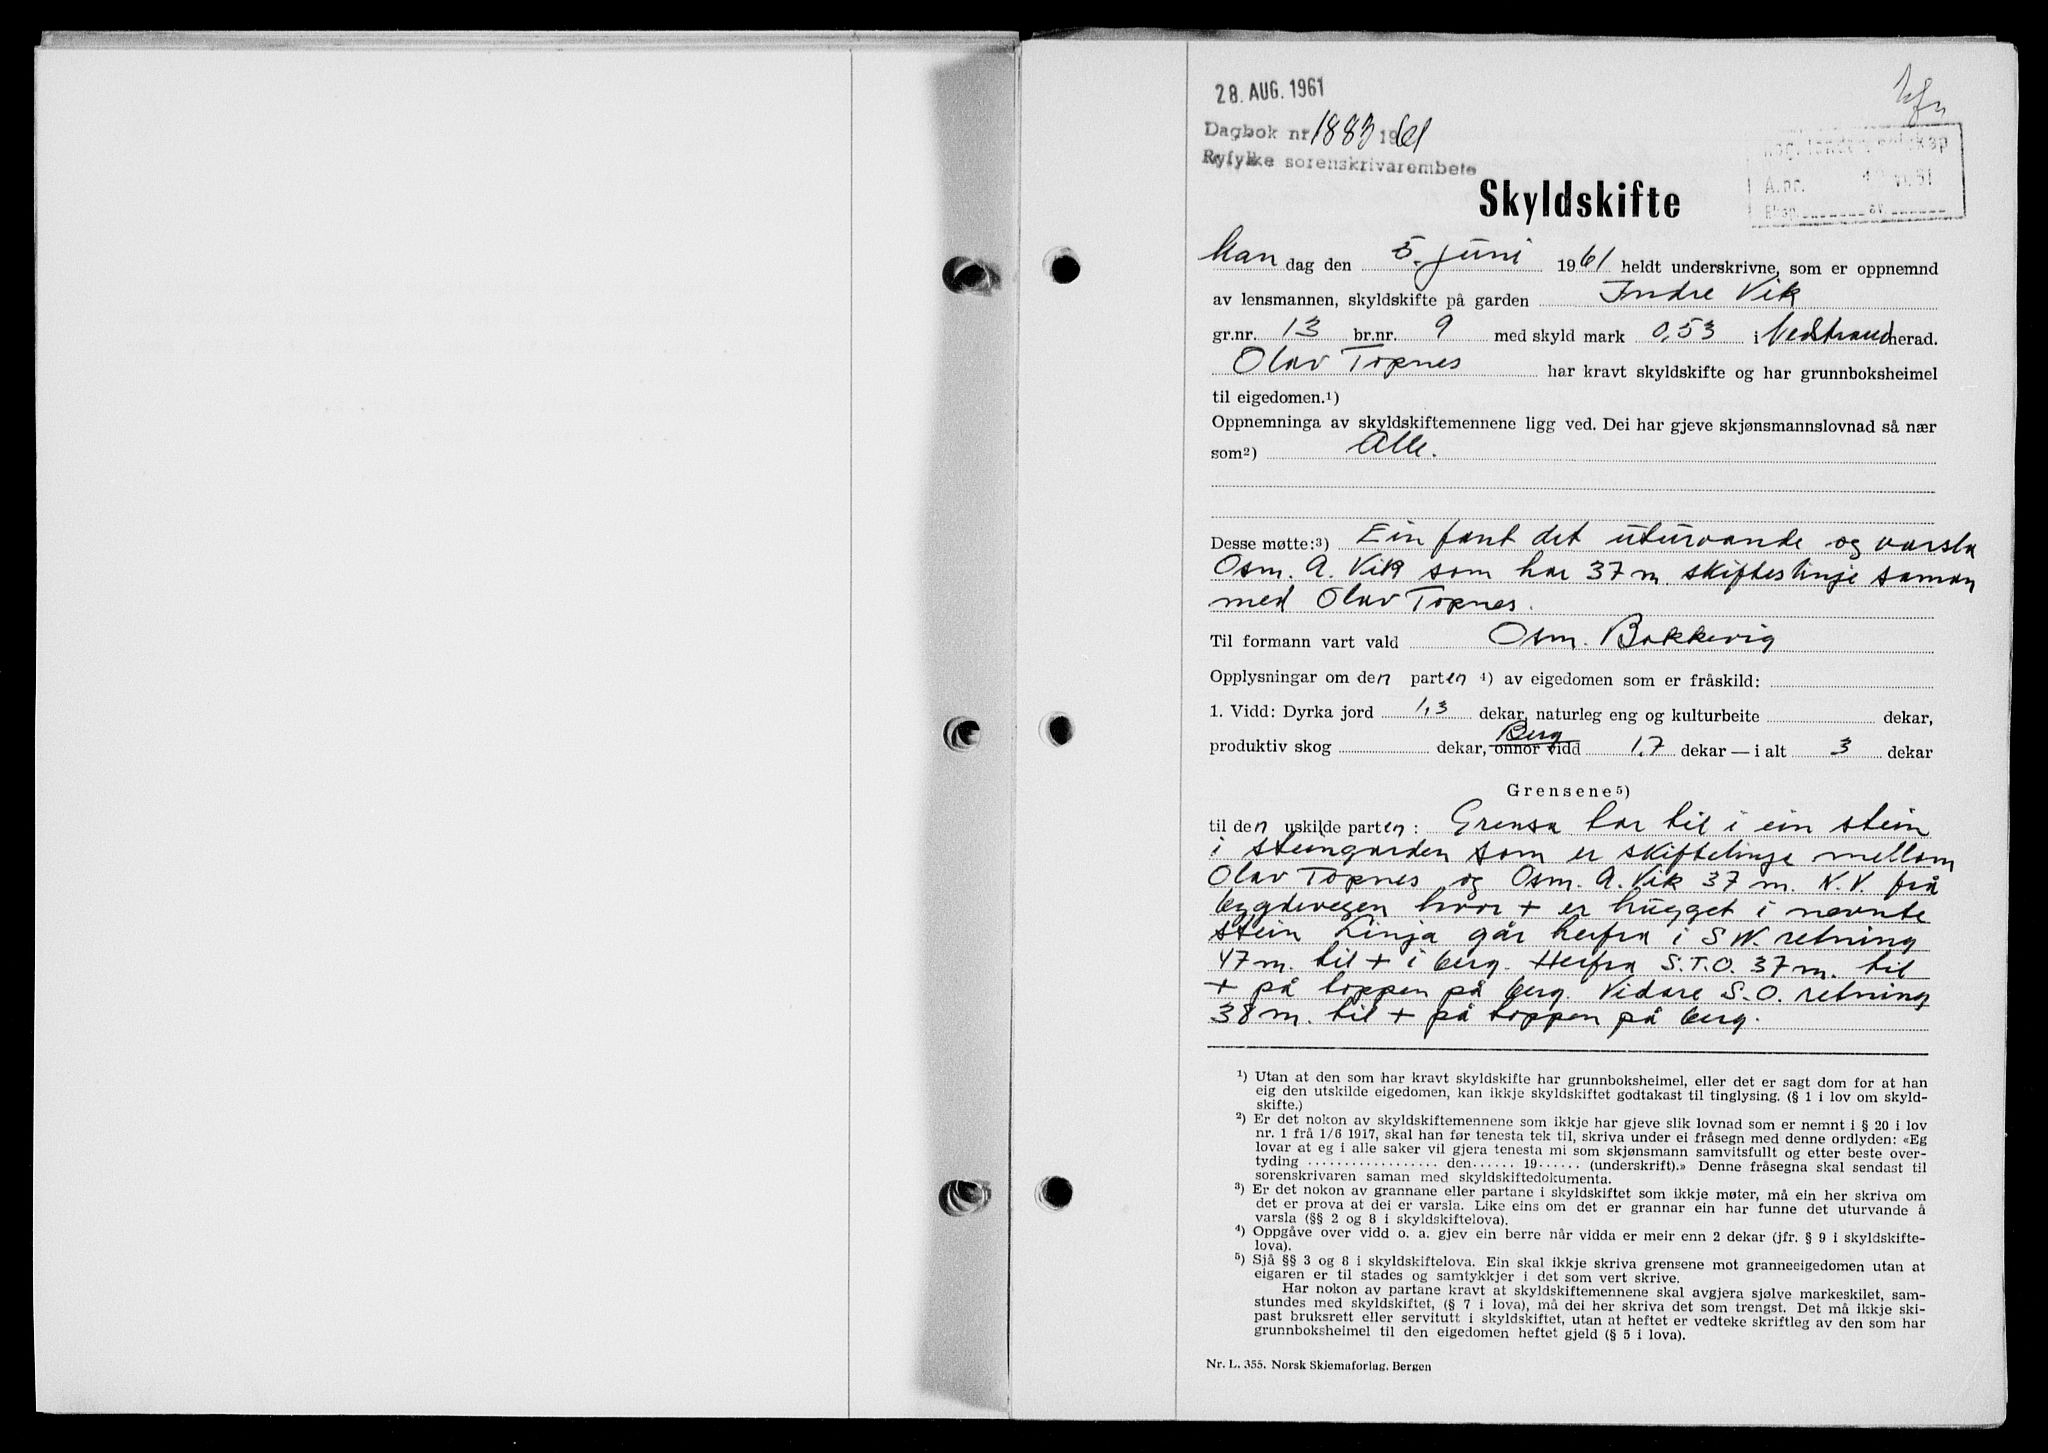 28. AUG. 1961
Dagbok nr 1883 1961
Ryfylke sorenskrivarembete
A.nr.
Eksp. av
Skyldskifte
Man dag den 5. juni 1961 heldt underskrivne, som er oppnemnd
av lensmannen, skyldskifte på garden Indre Vik
gr.nr. 13 br.nr. 9 med skyld mark 0,53 i Nedstrand herad.
Olav Topnes har kravt skyldskifte og har grunnboksheimel
til eigedomen.1)
Oppnemninga av skyldskiftemennene ligg ved. Dei har gjeve skjønsmannslovnad så nær
som2) Alle.
Desse møtte:3) Ein fant det uturvande og varsla
Osm. A. Vik som har 37 m. skifteslinje saman
med Olav Topnes.
Til formann vart vald Osm. Bokkevig
Opplysningar om den parten 4) av eigedomen som er fråskild:
1. Vidd: Dyrka jord 1,3 dekar, naturleg eng og kulturbeite dekar,
produktiv skog dekar, onnor vidd Berg 1,7 dekar — i alt 3 dekar
Grensene5)
til den uskilde parten: Grensa tar til i ein stein
i steingarden som er skiftelinje mellom
Olav Topnes og Osm. A. Vik 37 m. N.V. frå
bygdevegen hvor + er hugget i nevnte
stein Linja går herfra i S W. retning
47 m. til + i berg. Herfra S.T.O. 37 m. til
+ på toppen på berg. Vidare S.O. retning
38 m. til + på toppen på berg.
1) Utan at den som har kravt skyldskifte har grunnboksheimel, eller det er sagt dom for at han
eig den utskilde eigedomen, kan ikkje skyldskiftet godtakast til tinglysing. (§ 1 i lov om skyld-
skifte.)
2) Er det nokon av skyldskiftemennene som ikkje har gjeve slik lovnad som er nemnt i § 20 i lov
nr. 1 frå 1/6 1917, skal han før tenesta tek til, skriva under ei fråsegn med denne ordlyden: «Eg
lovar at eg i alle saker vil gjera tenesta mi som skjønsmann samvitsfullt og etter beste over-
tyding .................. den...... 19...... (underskrift).» Denne fråsegna skal sendast til
sorenskrivaren saman med skyldskiftedokumenta.
3) Er det nokon av grannane eller partane i skyldskiftet som ikkje møter, må ein her skriva om
det er prova at dei er varsla. Like eins om det er grannar ein har funne det uturvande å
varsla (§§ 2 og 8 i skyldskiftelova).
4) Oppgåve over vidd o. a. gjev ein berre når vidda er meir enn 2 dekar (jfr. § 9 i skyldskifte-
lova).
5) Sjå §§ 3 og 8 i skyldskiftelova. Ein skal ikkje skriva grensene mot granneeigedomen utan at
eigaren er til stades og samtykkjer i det som vert skrive.
Har nokon av partane kravt at skyldskiftemennene skal avgjera sjølve markeskilet, sam-
stundes med skyldskiftet, (§ 7 i lova), må dei her skriva det som trengst. Det må ikkje ski-
past bruksrett eller servitutt i skyldskiftet, utan at heftet er vedteke skriftleg av den som har
grunnboksheimel til den eigedomen heftet gjeld (§ 5 i lova).
Nr. L. 355. Norsk Skjemaforlag. Bergen